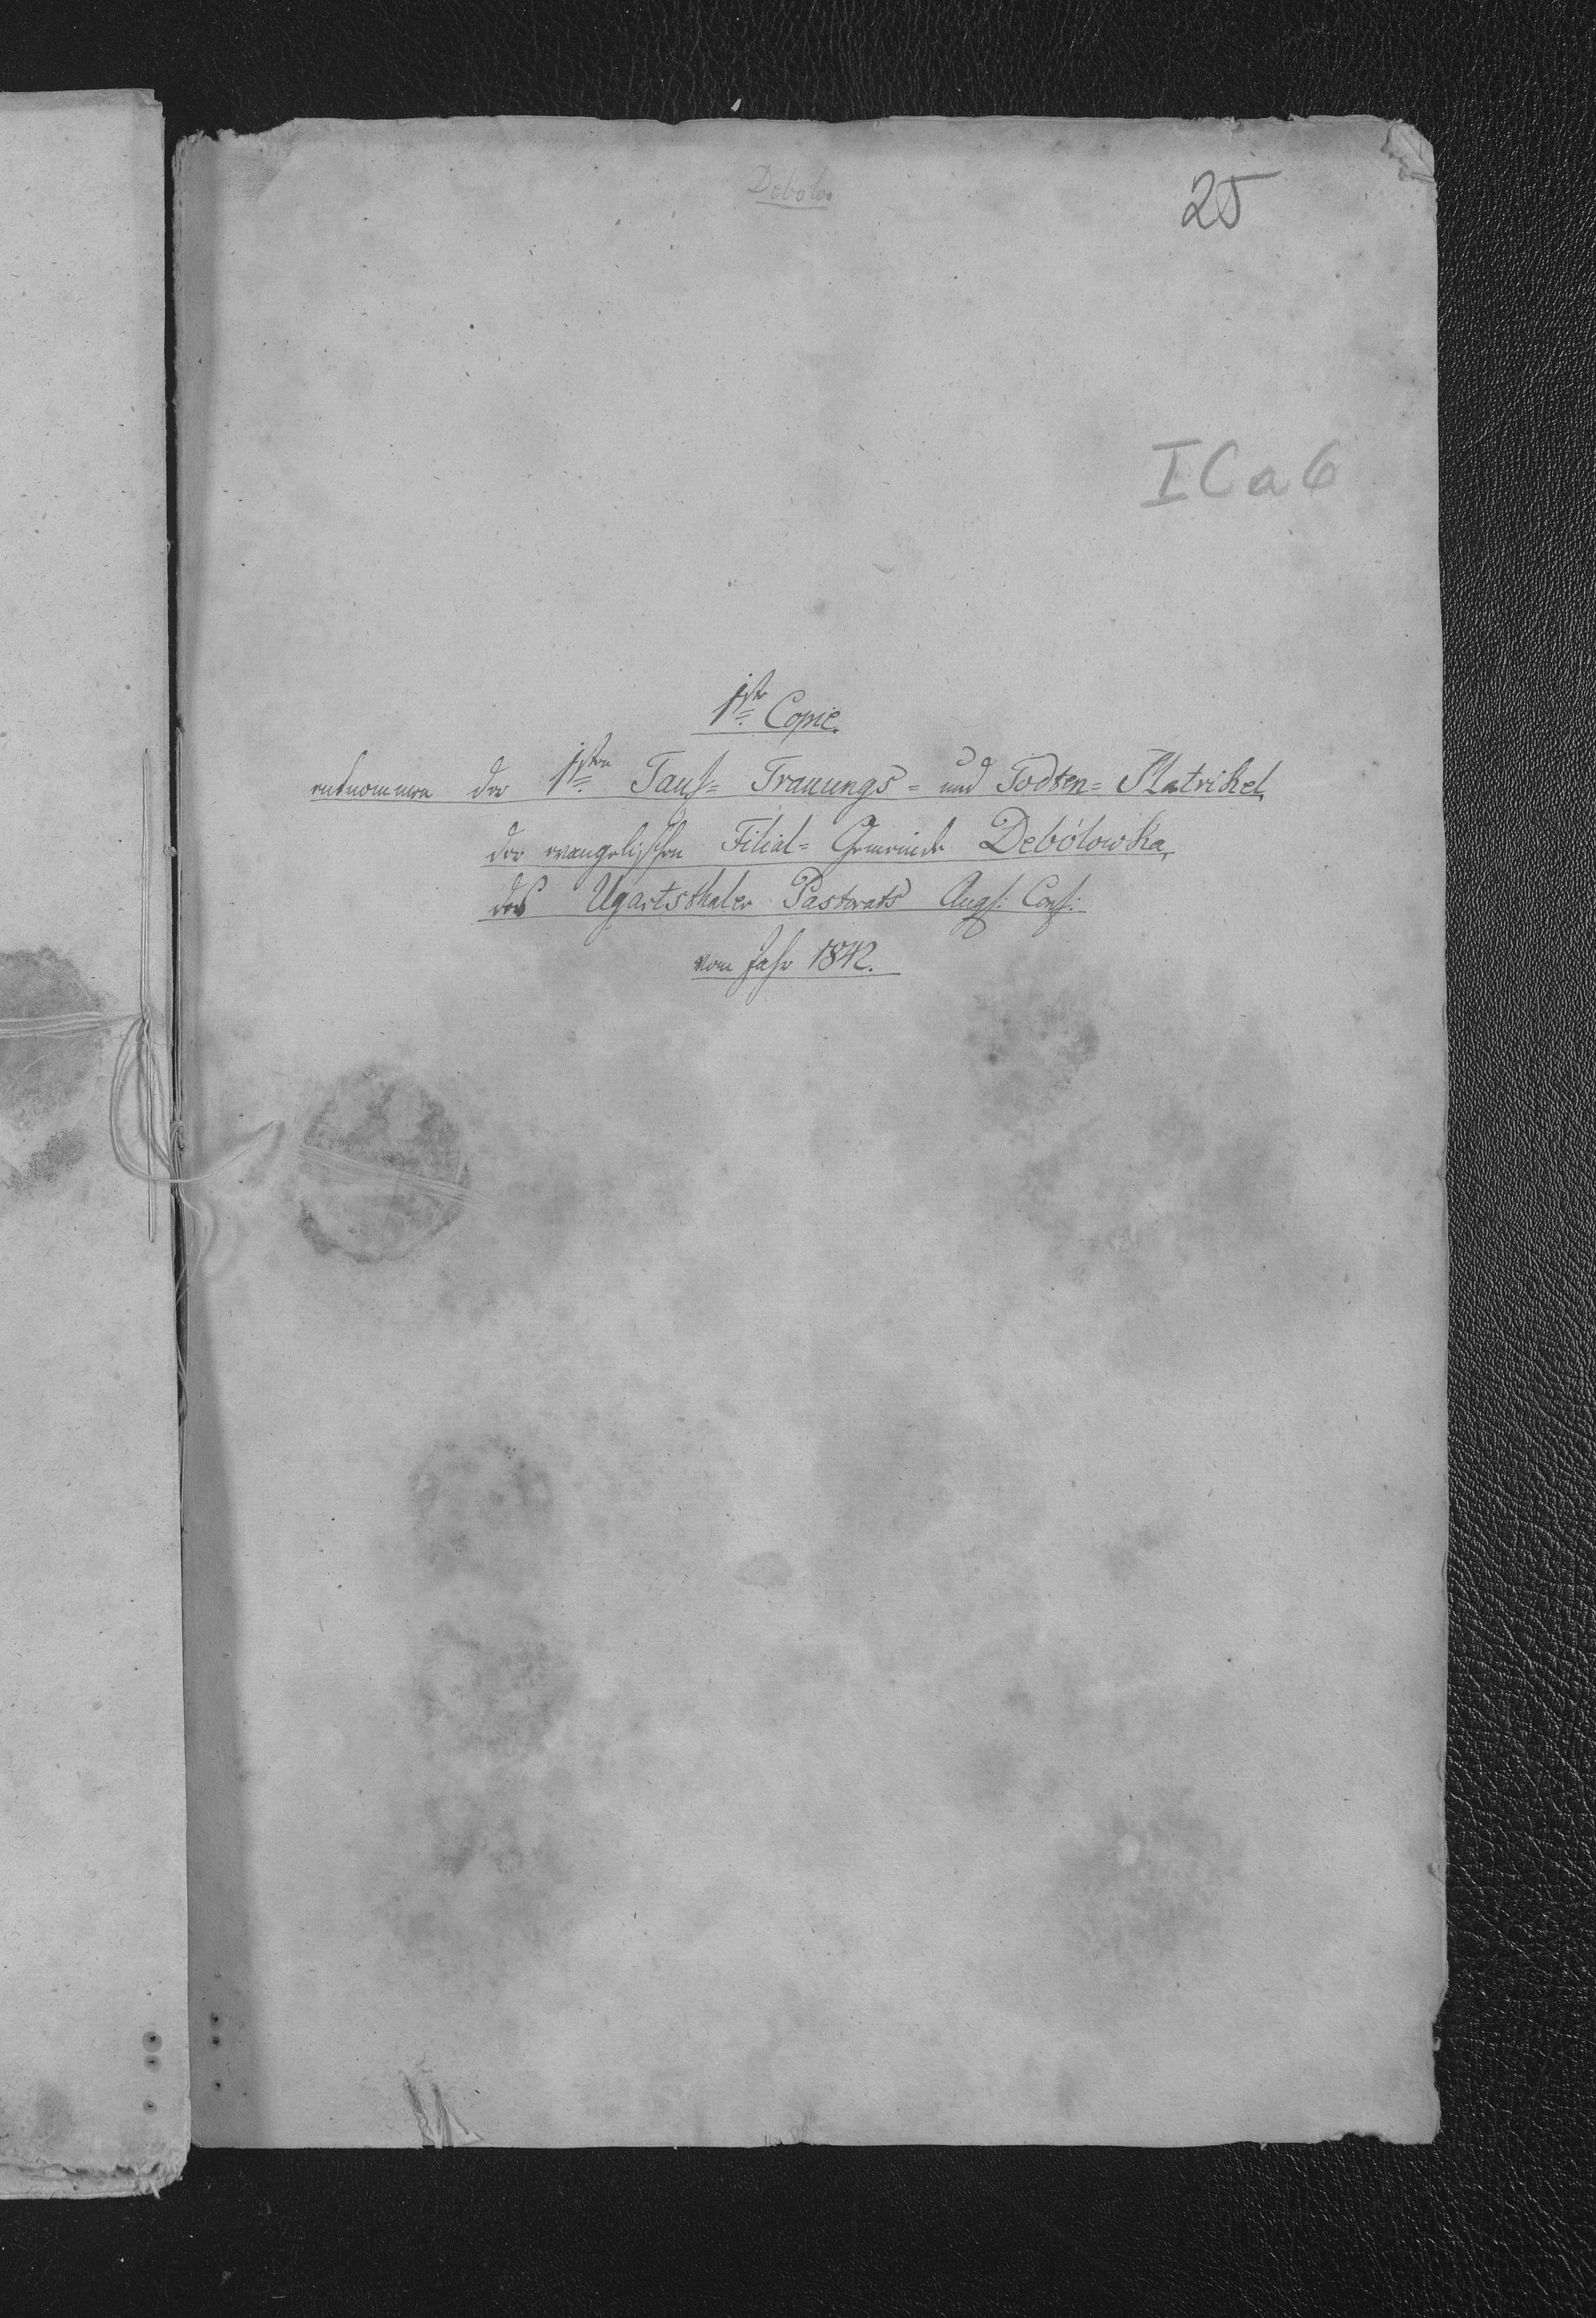 Debolo
25
I C a 6
1ste Copie.
entnommen der 1sten Tauf= Trauungs= und Todten= Matrikel,
der evangelischen Filial= Gemeinde Debólowka,
des Ugartsthaler Pastorats Augs: Conf:
vom Jahr 1842.